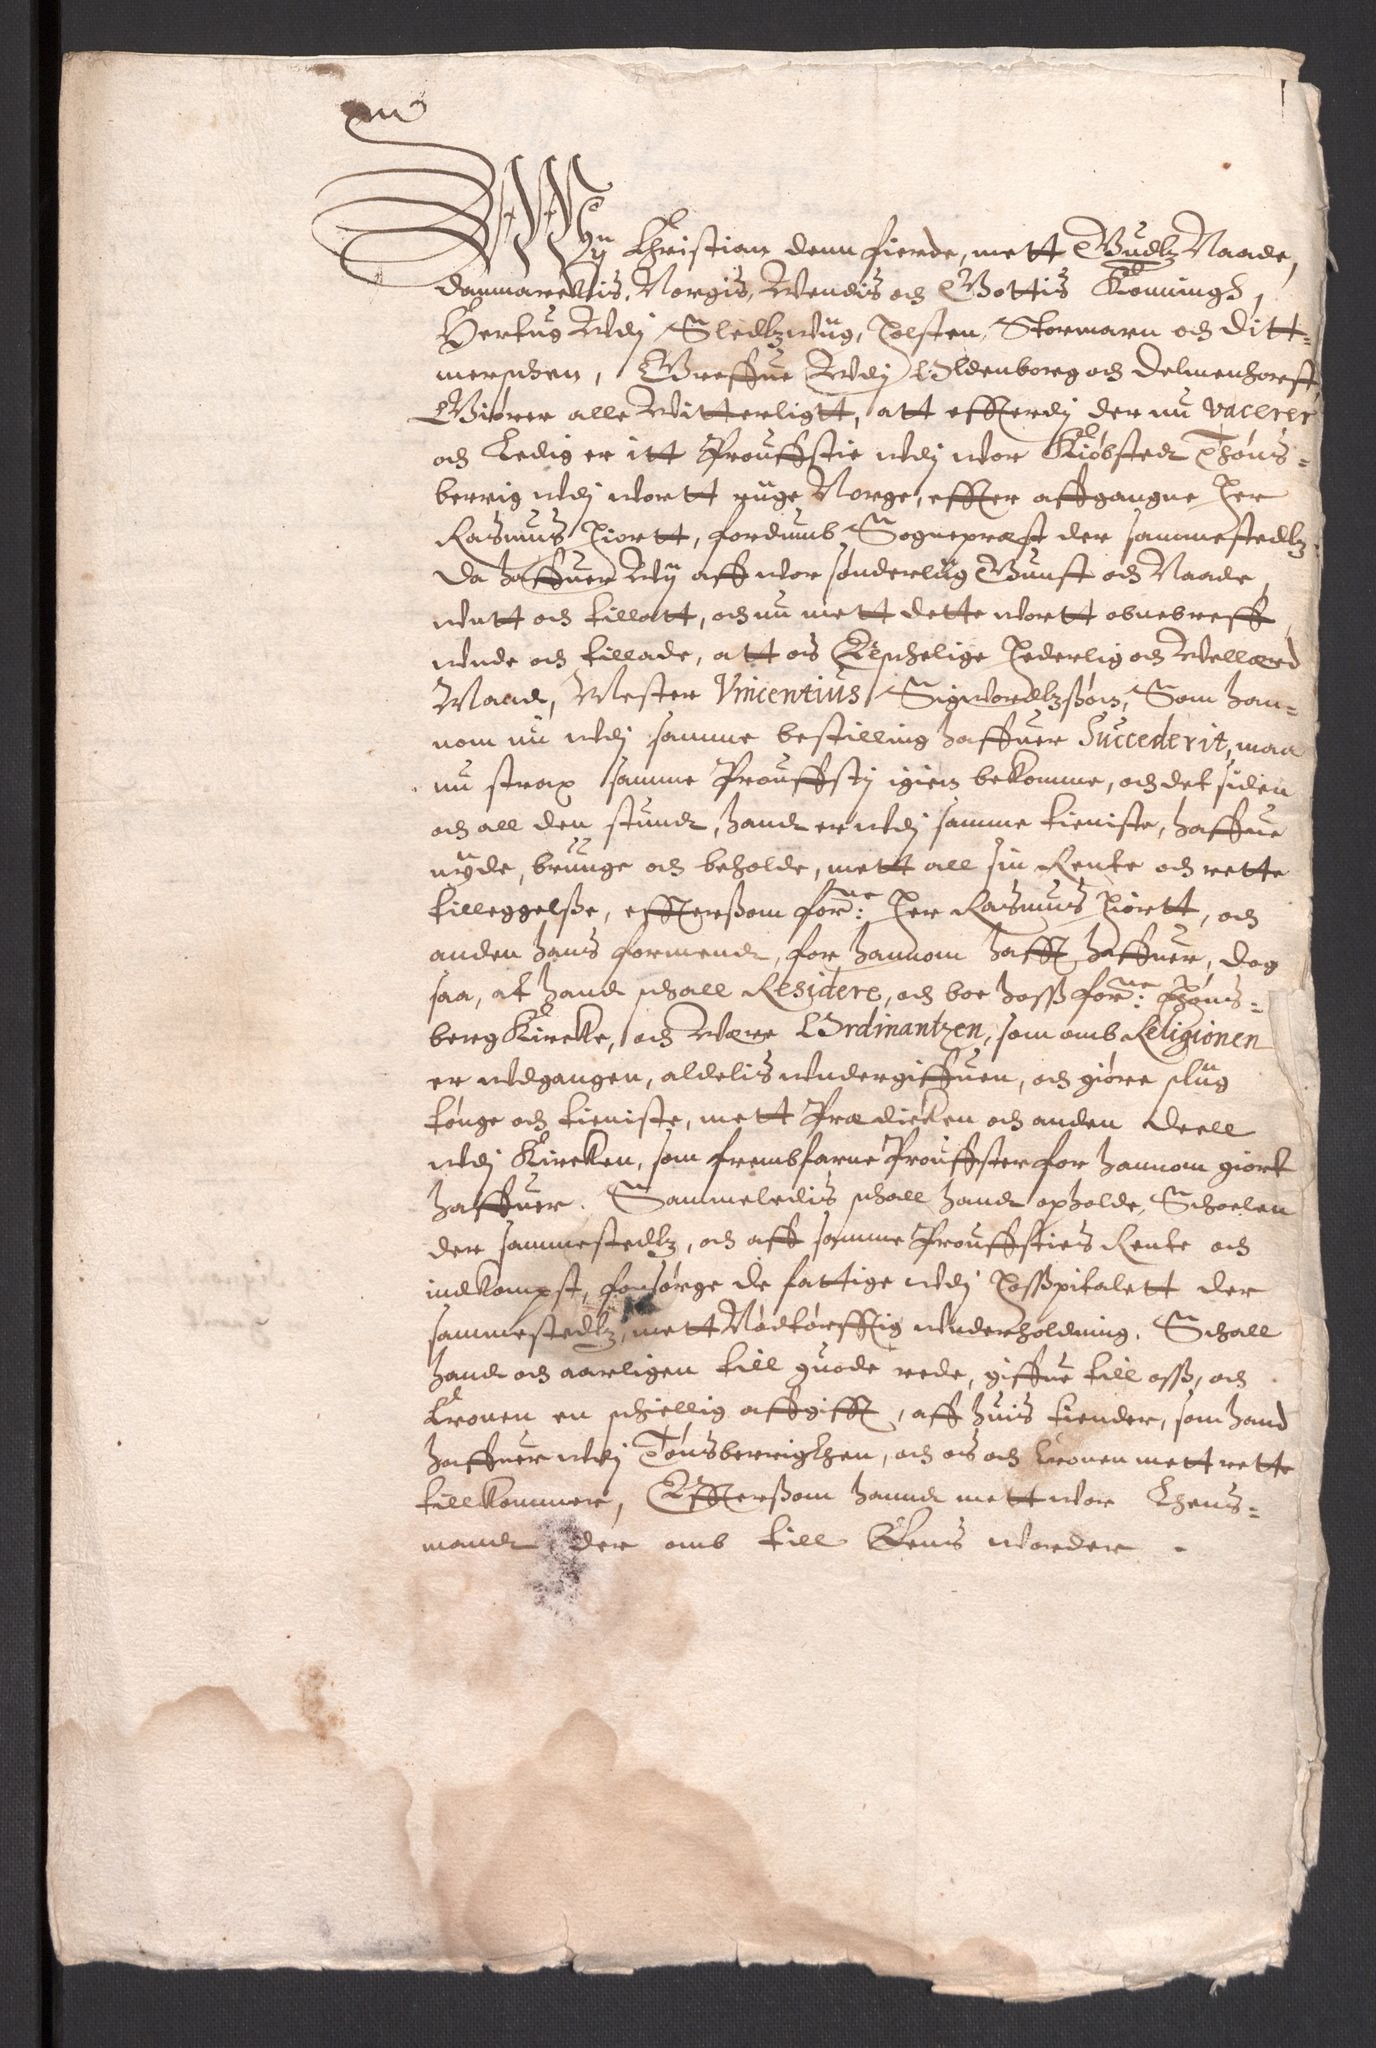 Wy Christian denn fierde, mett Gudtz Naade,
Danmarckis, Norgis, Wendis och Gottis Konningh,
Hertug Wdj Sledtzwiig, Holsten, Stormarn och Ditt-
merschen, Greffue Wdj Oldenborg och Delmenhorst
Giører alle Witterligtt, att effterdj der nu vacerer
och Ledig er itt Prouffstie wdj wor Kiøbsted Thøns-
berrig wdj wortt riige Norge, effter affgangne Her
Rasmus Hiortt, fordumb Sognepræst der sammestedtz
Da haffuer Wij aff wor sønderliig Gunst och Naade,
wntt och tillatt, och nu mett dette wortt obnebreff
wnde och tillade, att os Elschelige Hederlig och Wellærd
Mand, Mester Vincentius Sigwordtzßøn, Som han-
nom nu wdj samme bestilling haffuer Succederit, maa
nu strax samme Prouffstj igien bekomme, och det siden
och all den stundt, hand er wdj samme tieniste, haffue
nyde, bruuge och beholde, mett all sin Rente och rette
tilleggelße, effterßom forne: Her Rasmus Hiortt, och
anden hans formend, for hannom hafft haffuer, dog
saa, at hand schall Residere, och boe hoss forne: Thøns-
berg Kircke, och Were Ordinantzen, som omb Religionen
er wdgangen, aldelis wndergiffuen, och giøre sliig
tønge och tieniste, mett Prædicken och anden deell
wdj Kircken, som frembfarne Prouffster for hannom giort
haffuer. Sammeledis schall hand opholde, Schoelen
der sammestedtz, och aff samme Prouffsties Rente och
indkompst, forsørge de fattige wdj Hosspitalett der
sammestedtz, mett Nødtørfftig wnderholdning. Schall
hand och aarligen till guode rede, giffue till oss, och
Cronen en schiellig affgifft, aff huis tiender, som hand
haffuer wdj Tønsberrig Lhen, och os och Cronen mett rette
tillkommer, Effterßom hannd mett wor Lhens-
mand der omb till Eens worder.